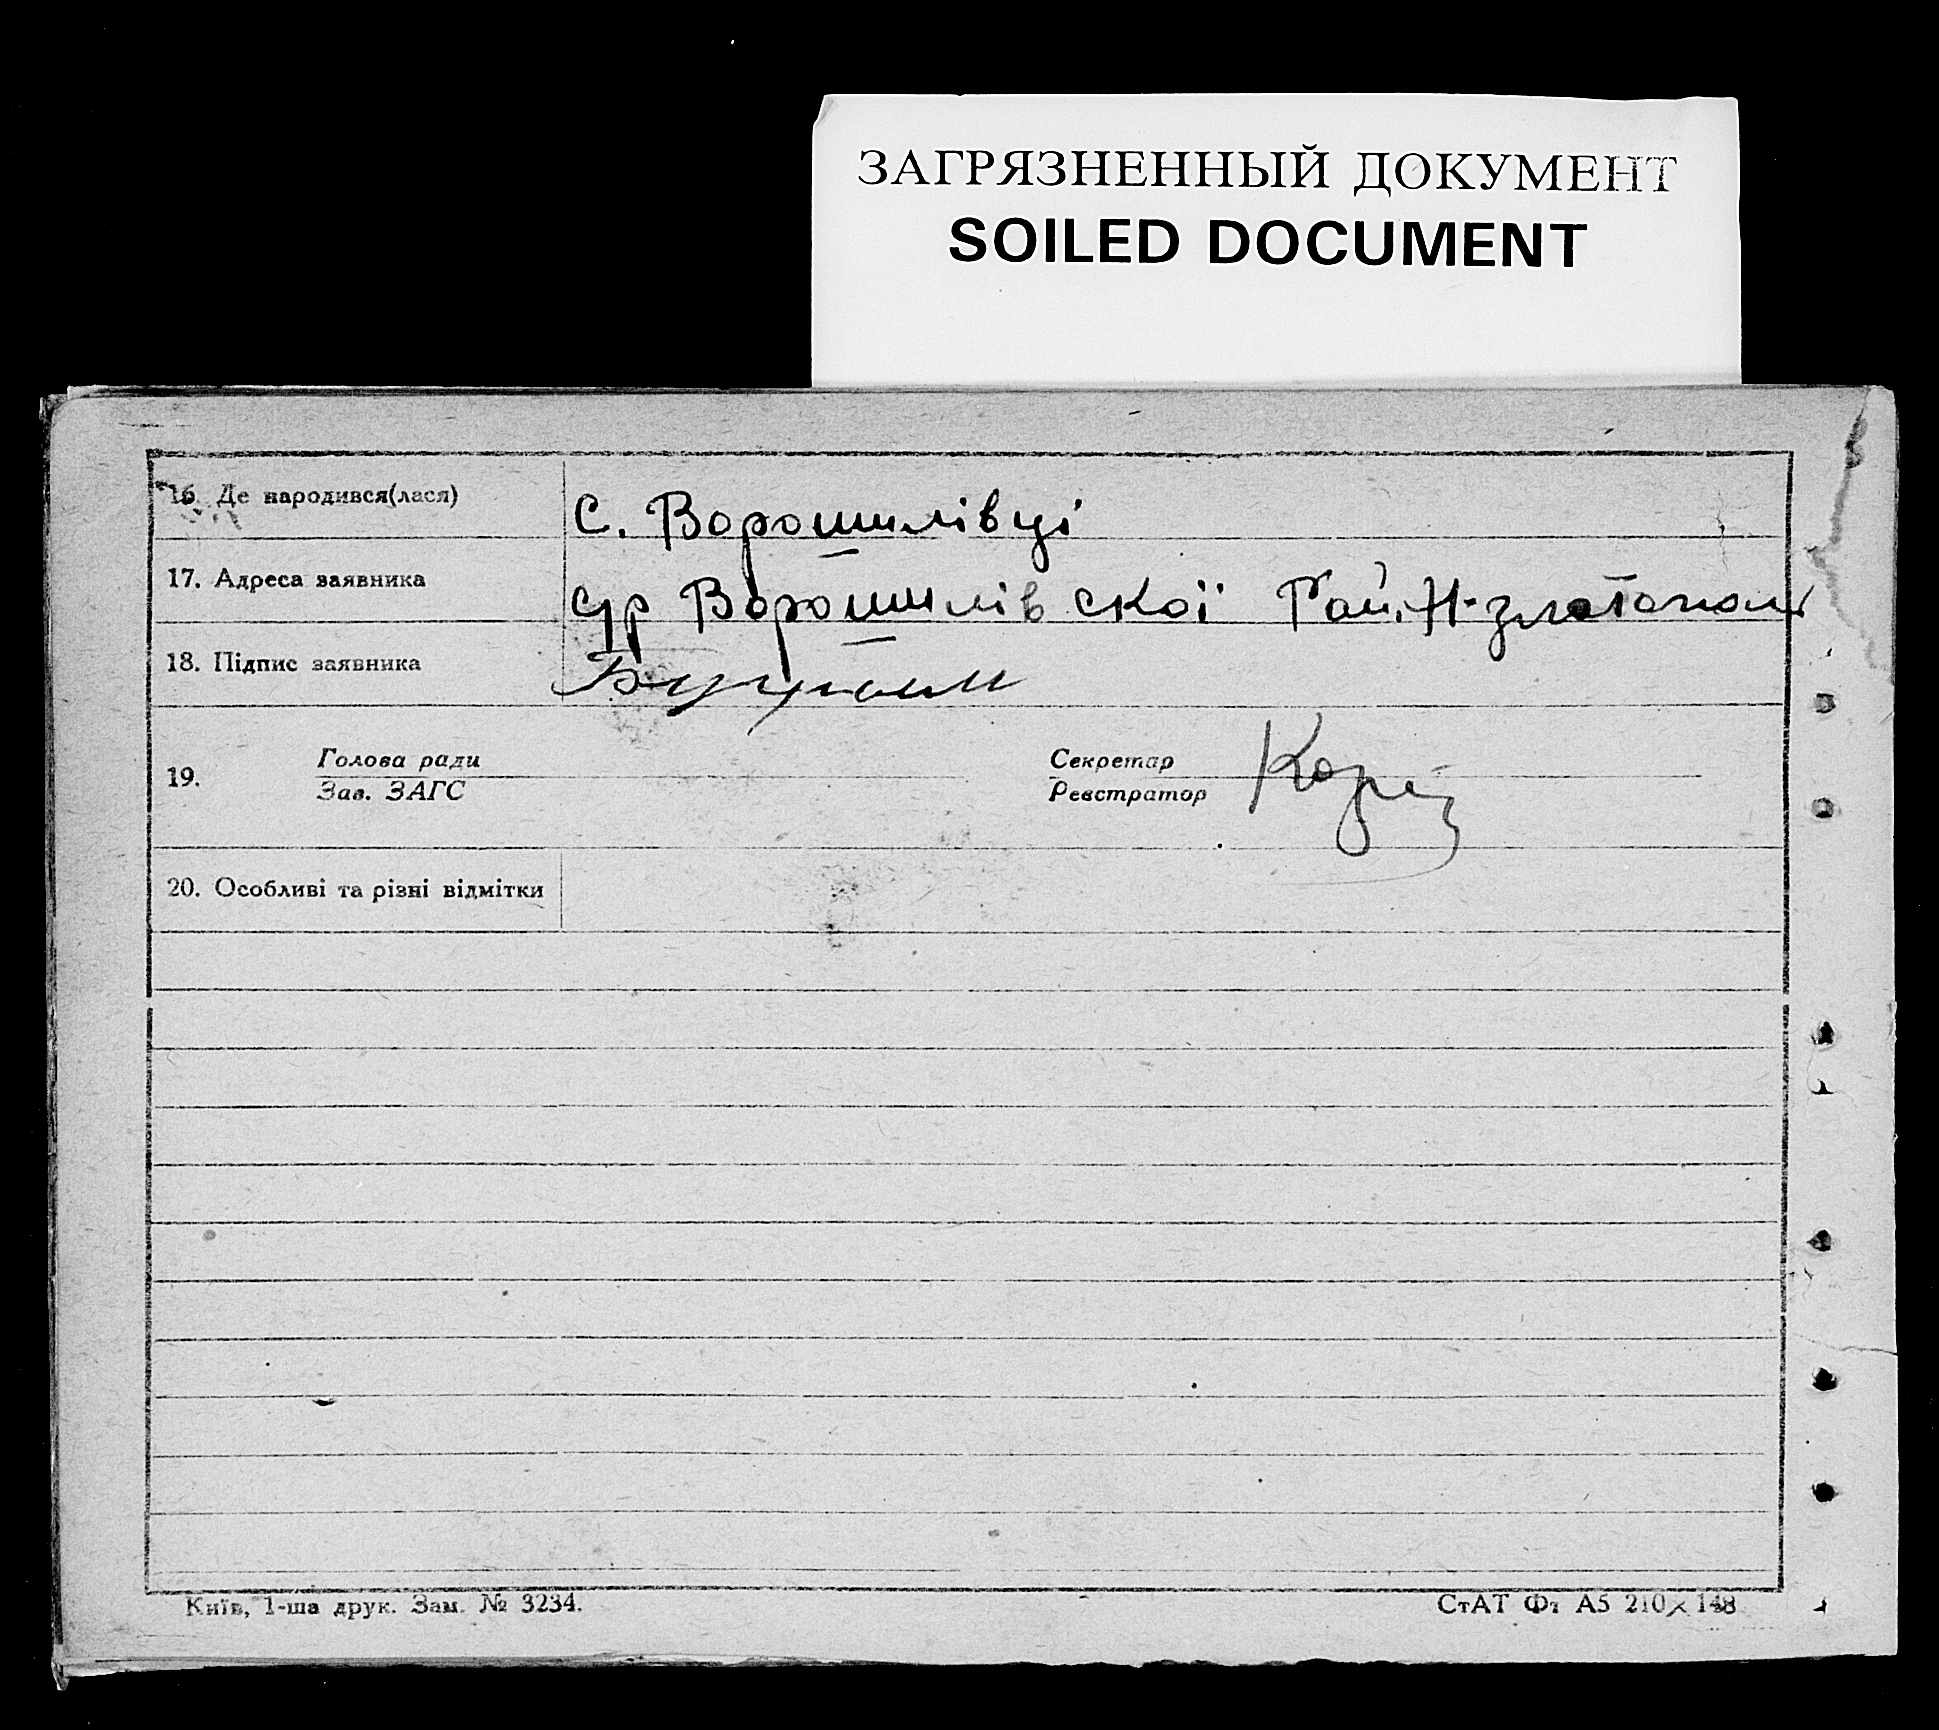 ЗАГРЯЗНЕННЫЙ ДОКУМЕНТ
SOILED DOCUMENT
16. Де народився(лася) С. Ворошилівці
17. Адреса заявника с/р Ворошилівскої Рай. Н-златополь
18. Підпис заявника
19. Голова ради Секретар
Зав. ЗАГС Реєстратор
20. Особливі та різні відмітки
Київ, 1-ша друк. Зам. № 3234.
СтАТ Ф1 А5 210×148